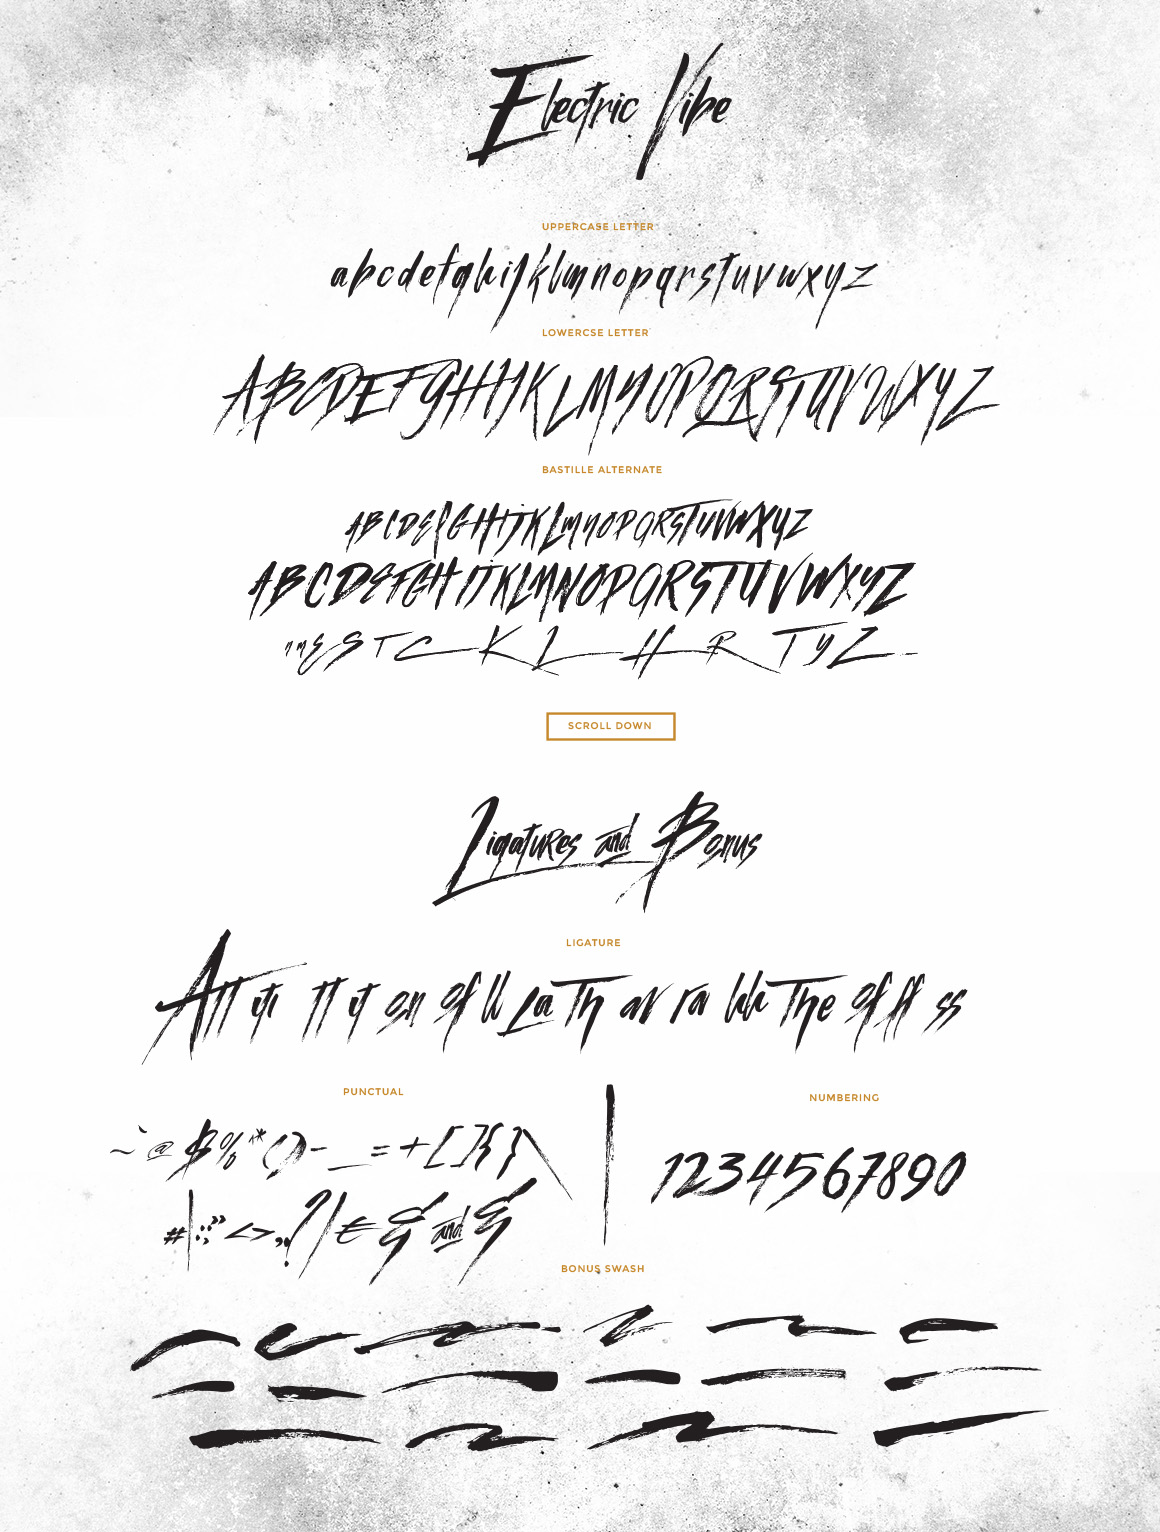 Electric Vibe
UPPERCASE LETTER
abcdefghijklmnopqrstuvwxyz
LOWERCSE LETTER
ABCDEFGHIJKLMNOPQRSTUVWXYZ
BASTILLE ALTERNATE
ABCDEFGHIJKLMNOPQRSTUVWXYZ
ABCDEFGHIJKLMNOPQRSTUVWXYZ
E S T C K L H R T y Z
SCROLL DOWN
Ligatures and Bonus
LIGATURE
Att iti tt it on of ll La Th av ra lik The of ff ss
PUNCTUAL
NUMBERING
~ ` @ $ % * ( ) - _ = + [ ] { } \
1234567890
# | : ; " < > , . ? / € & and &
BONUS SWASH